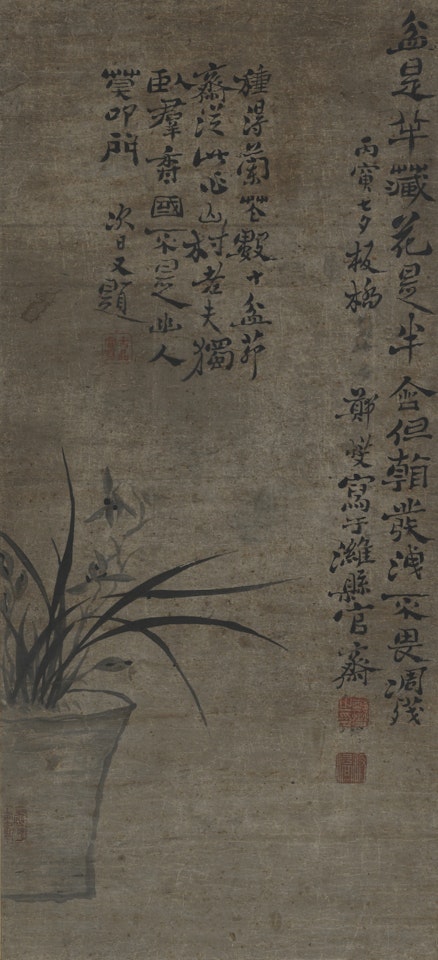 盆是半藏花是半含但發洩不畏凋殘
丙寅七夕板橋鄭燮寫于濰縣官齋
種得蘭花數十盆茆
齋從此作山村老夫獨
臥羣香國不是幽人
莫叩門 次日又題